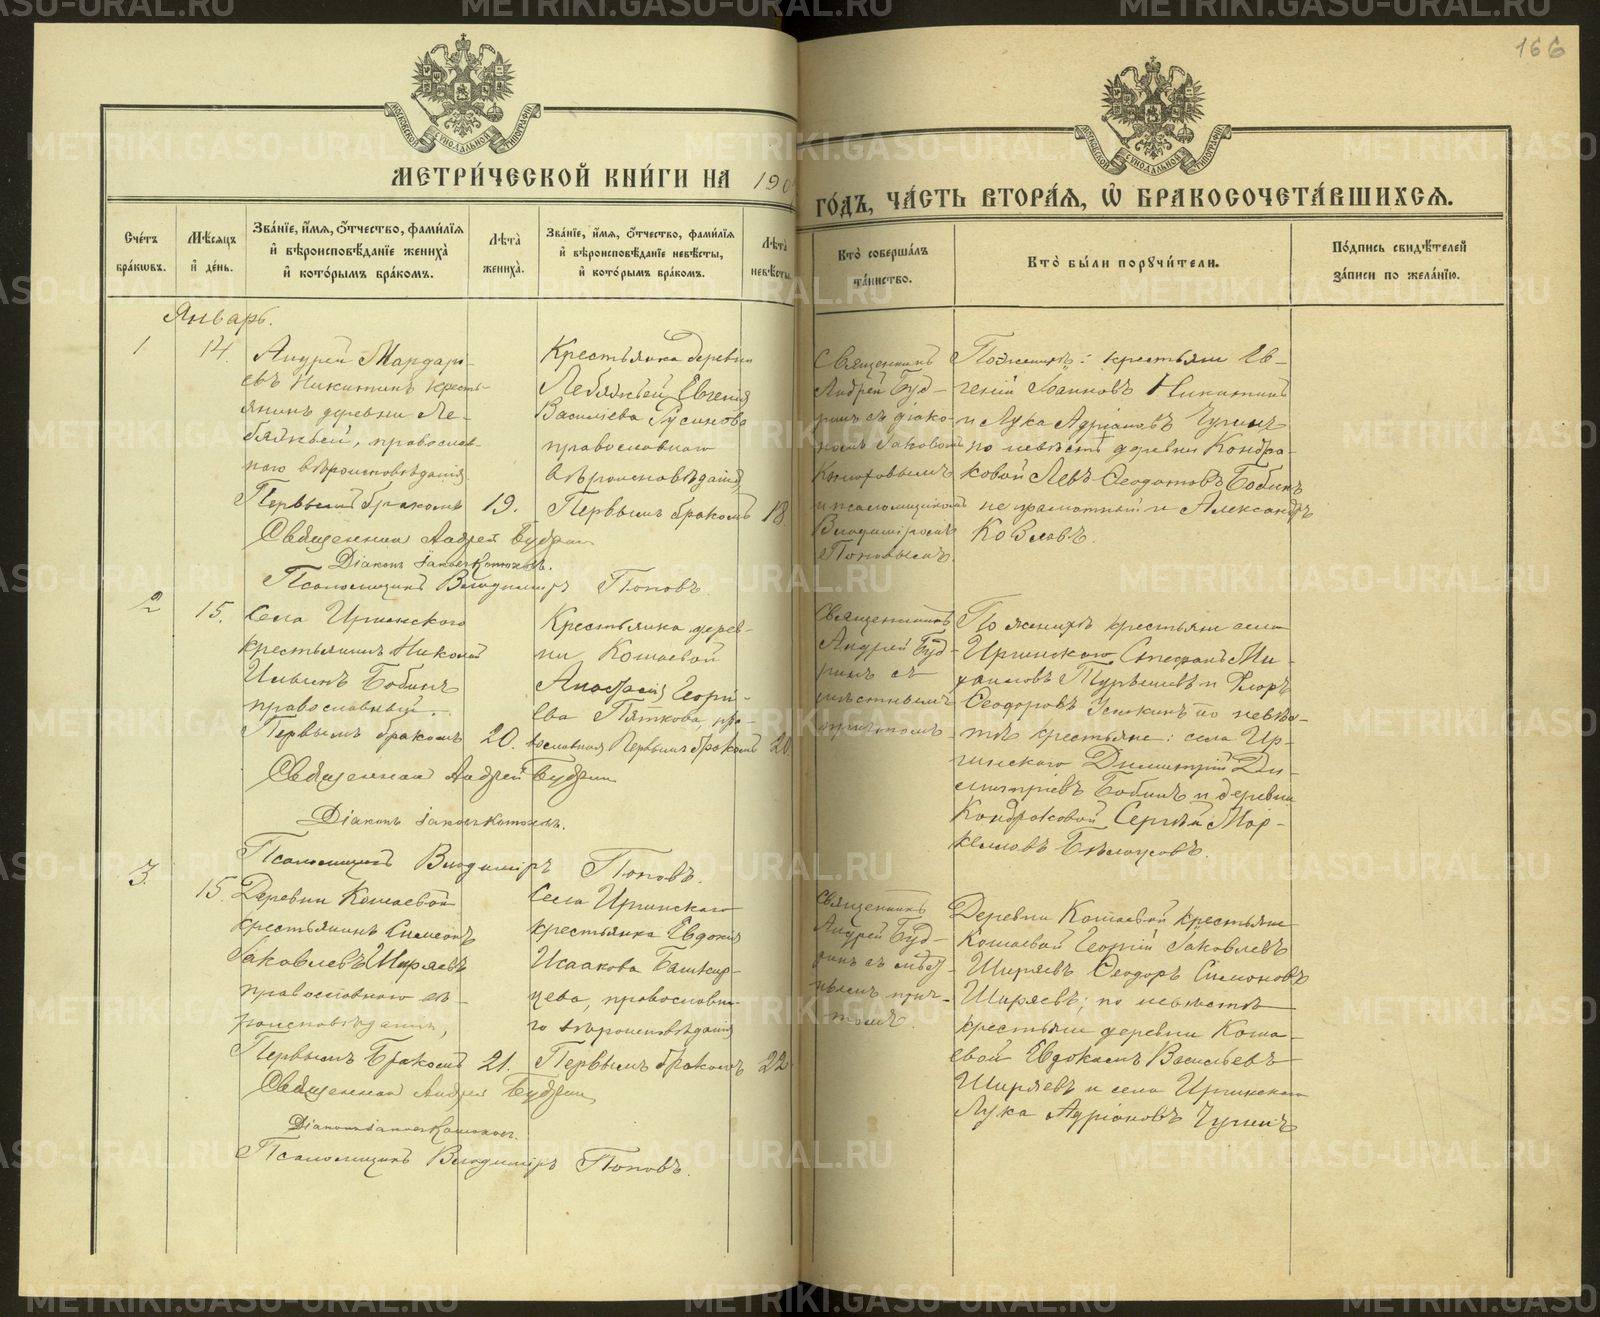 166
МОСКОВСКОЙ СѴНОДАЛЬНОЙ ТИПОГРАФІИ
МОСКОВСКОЙ СѴНОДАЛЬНОЙ ТИПОГРАФІИ
МЕТРИ́ЧЕСКОЙ КНИ́ГИ НА 190
ГО́ДЪ, ЧА́СТЬ ВТОРА́Ѧ, Ѽ БРАКОСОЧЕТА́ВШИХСѦ.
Сче́тъ бра́кѡвъ.
Мѣ́сѧцъ и҆ де́нь.
Зва́нїе, и҆́мѧ, ѻ҆́тчество, фами́лїѧ
и҆ вѣроисповѣ́данїе жениха̀
и҆ кото́рымъ бра́комъ.
Лѣ́та жениха̀.
Зва́нїе, и҆́мѧ, ѻ҆́тчество, фами́лїѧ
и҆ вѣроисповѣ́данїе невѣ́сты,
и҆ кото́рымъ бра́комъ.
Лѣ́та невѣ́сты.
Кто̀ соверша́лъ та́инство.
Кто̀ бы́ли порꙋчи́тели.
По́дпись свидѣ́телей
за́писи по жела́нїю.
Январь.
1
14.
Андрей Мардарі-
евъ Никитинъ кресть-
янинъ деревни Ле-
бяжьей, православ-
наго вѣроисповѣданія
Первымъ бракомъ
19.
Крестьянка деревни
Лебяжьей Евгенія
Василіева Русинова
православнаго
вѣроисповѣданія,
Первымъ бракомъ
18
Священникъ
Андрей Буд-
ринъ съ діако-
номъ Іаковомъ
и псаломщикомъ
Владиміромъ
Поповымъ
По женихѣ: крестьяне Ев-
геній Іоанновъ Никитинъ
и Лука Адріановъ Чугинъ
по невѣстѣ деревни Кондра-
ковой Левъ Ѳеодотовъ Бобинъ
не грамотный и Александръ
Козловъ.
Священникъ Андрей Будрин
Діаконъ Іаковъ
Псаломщикъ Владиміръ Поповъ.
2
15.
Села Иргинскаго
крестьянинъ Николай
Ильинъ Бобинъ
православный.
Первымъ бракомъ
20.
Крестьянка дерев-
ни Кошаевой
Анастасія Георгі-
ева Пяткова, пра-
вославная Первымъ бракомъ
20
Священникъ
Андрей Буд-
ринъ съ
мѣстнымъ
причтомъ
По женихѣ крестьяне села
Иргинскаго Стефанъ Ми-
хаиловъ и Флоръ
Ѳеодоровъ по невѣс-
тѣ крестьяне: села Ир-
гинскаго Димитрій Ди-
митріевъ Бобинъ и деревни
Кондраковой Сергѣй Мар-
келловъ
Священникъ Андрей Будрин
Діаконъ Іаковъ
Псаломщикъ Владиміръ Поповъ.
3.
15.
Деревни Кошаевой
крестьянинъ Симеонъ
Іаковлевъ Ширяевъ
православнаго вѣ-
роисповѣданія,
Первымъ бракомъ
21.
Села Иргинскаго
крестьянка Евдокія
Исаакова Башкир-
цева, православна-
го вѣроисповѣданія
Первымъ бракомъ
22
Священникъ
Андрей Буд-
ринъ съ мѣст-
нымъ прич-
томъ.
Деревни Кошаевой крестьяне
Кошаевой Георгій Іаковлевъ
Ширяевъ Ѳеодоръ Симоновъ
Ширяевъ; по невѣстѣ
крестьяне деревни Коша-
евой Евдокимъ Васильевъ
Ширяевъ и села Иргинскаго
Лука Адріановъ Чугинъ
Священникъ Андрей Будрин
Діаконъ Іаковъ
Псаломщикъ Владиміръ Поповъ.
METRIKI.GASO-URAL.RU